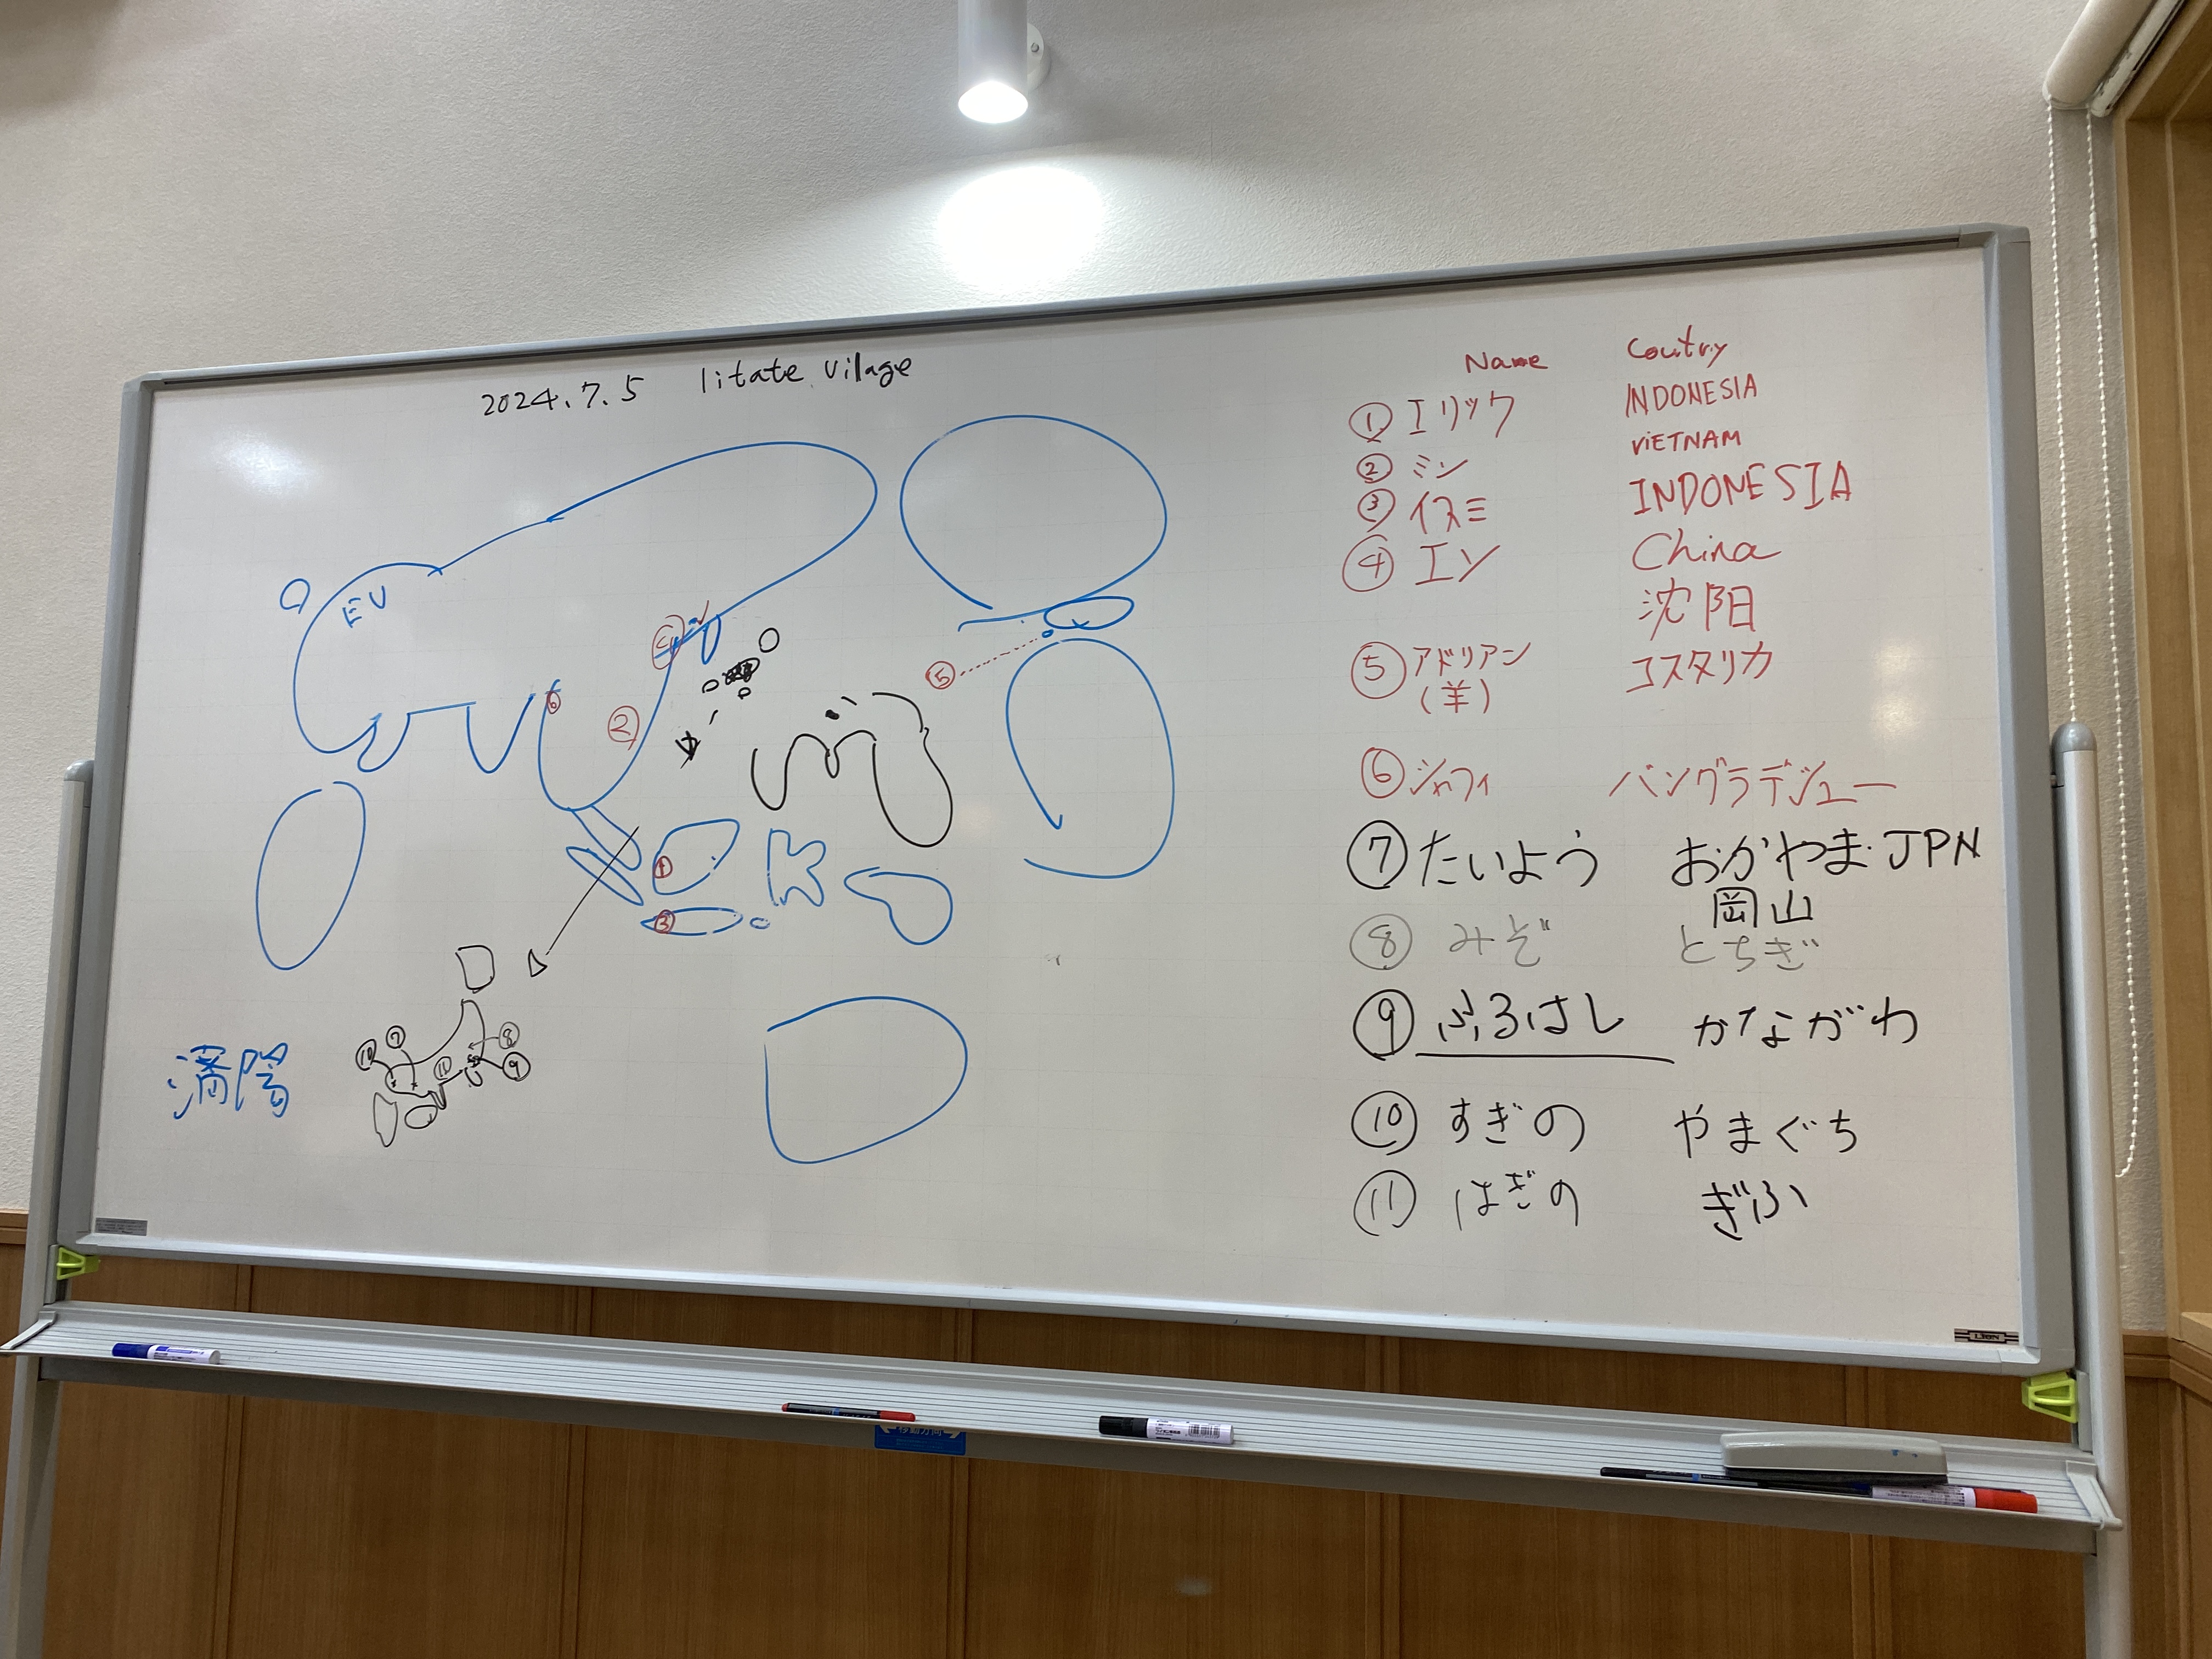 2024.7.5 Iitate Vilage
EU
④
⑥
②
①
③
⑤
⑩ ⑦ ⑧
⑪ ⑨
Name Coutry
① エリック INDONESIA
② ミン VIETNAM
③ イスミ INDONESIA
④ エン China
沈阳
⑤ アドリアン コスタリカ
(羊)
⑥ シャフィ バングラデシュー
⑦ たいよう おかやま JPN
岡山
⑧ みぞ とちぎ
⑨ ふるはし かながわ
⑩ すぎの やまぐち
⑪ はぎの ぎふ
移動方向
LION